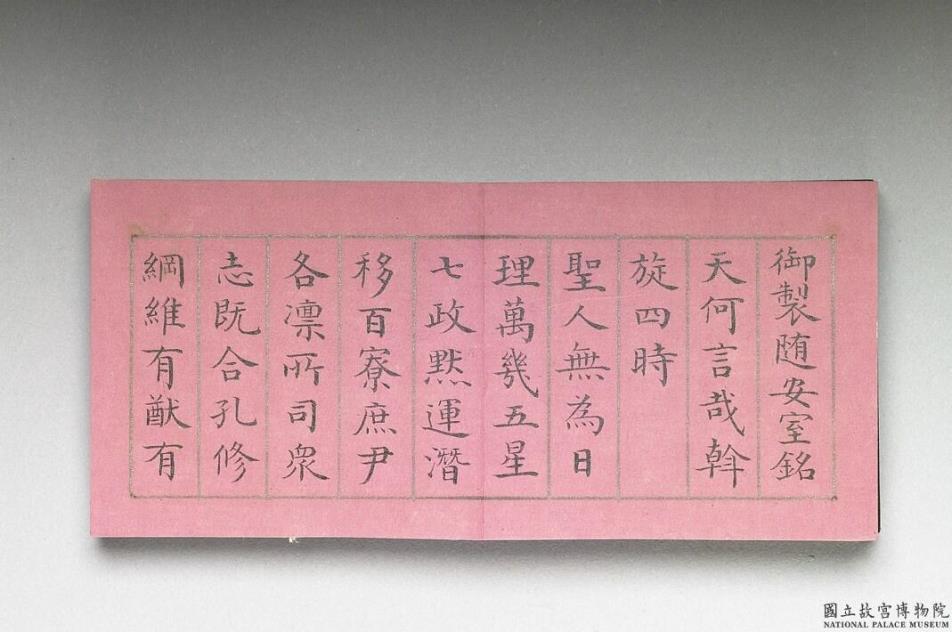 御製随安室銘
天何言哉斡
旋四時
聖人無為日
理萬幾五星
七政默運潛
移百寮庶尹
各凛所司衆
志既合孔修
綱維有猷有
國立故宮博物院
NATIONAL PALACE MUSEUM